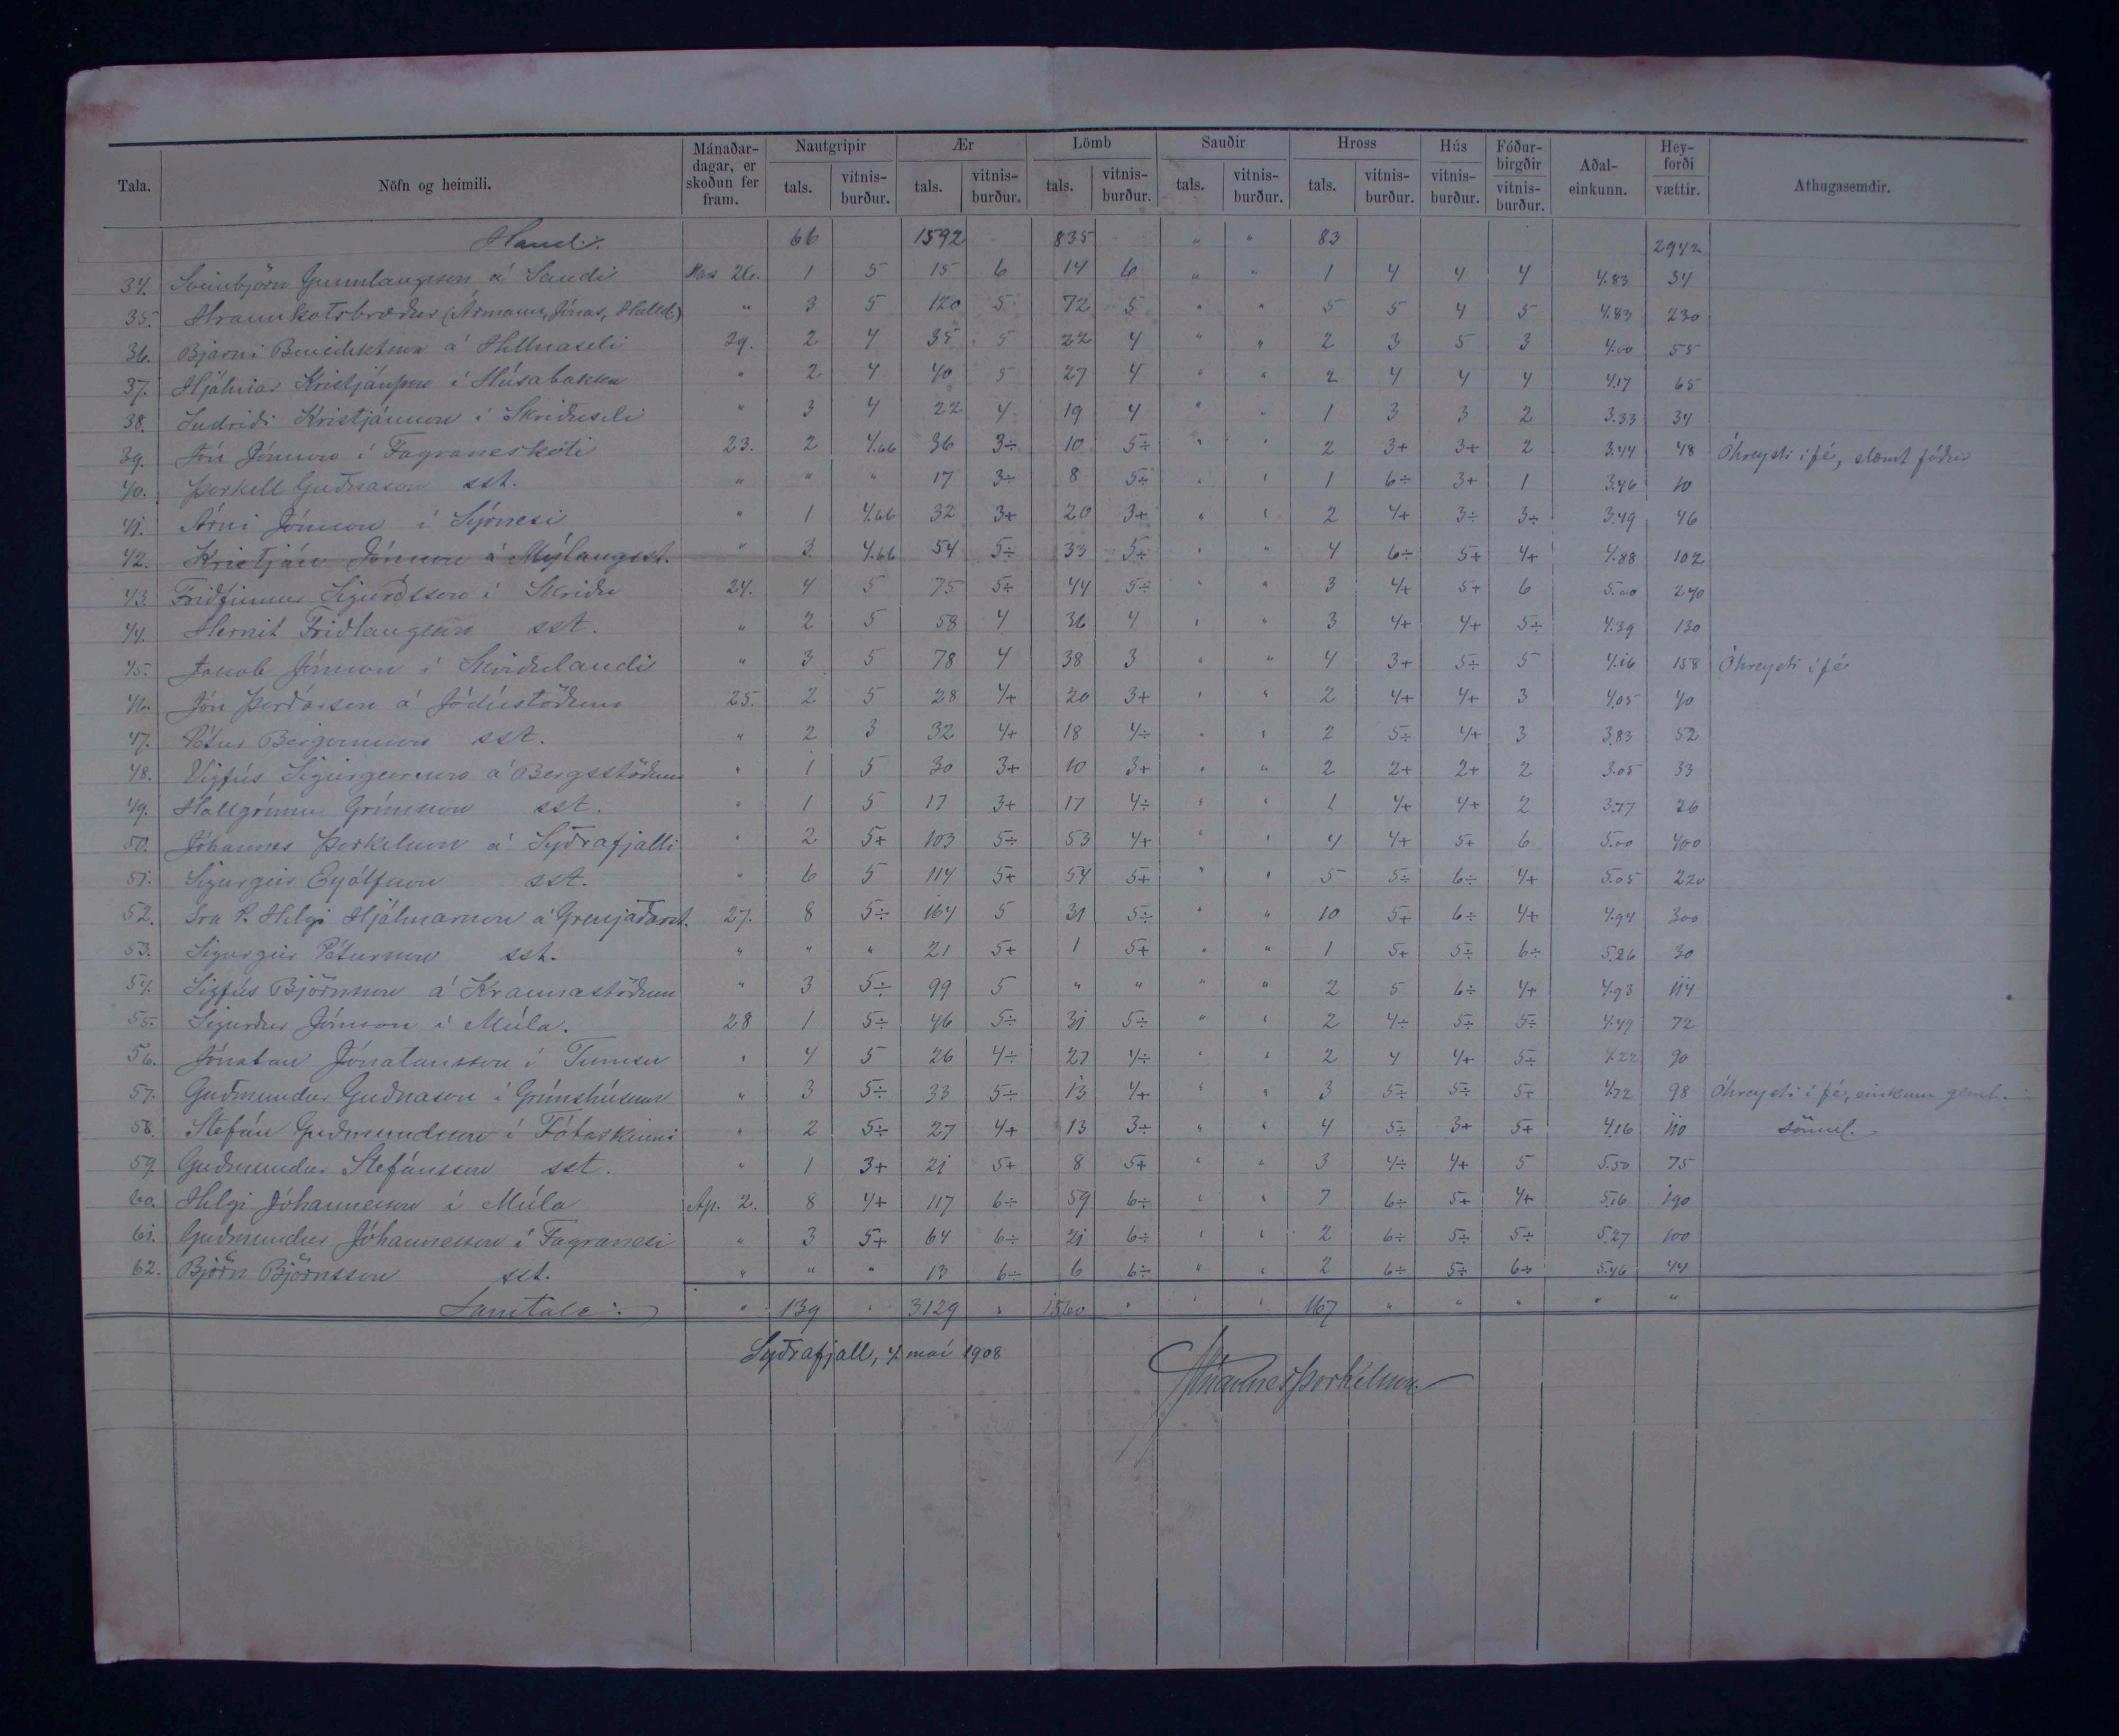 Tala. Nöfn og heimili. Mánaðar-dagar, er skoðun fer fram. Nautgripir tals. vitnis-burður. Ær tals. vitnis-burður. Lömb tals. vitnis-burður. Sauðir tals. vitnis-burður. Hross tals. vitnis-burður. Hús vitnis-burður. Fóður-birgðir vitnis-burður. Aðal-einkunn. Hey-forði vættir. Athugasemdir.
66 1592 835 " " 83 2942
34. Sveinbjörn Gunnlaugsson á Sandi Mas 26. 1 5 15 6 14 6 " " 1 4 4 4 4.83 34
35. Hraunkotsbræður (Ármann, Jónas, ) " 3 5 120 5 72 5 " " 5 5 4 5 4.83 230
36. Bjarni Benediktsson á Hellnaseli 29. 2 4 35 5 22 4 " " 2 3 5 3 4.00 55
37. Hjálmar Kristjánsson í Húsabakka " 2 4 40 5 27 4 " " 2 4 4 4 4.17 65
38. Indriði Kristjánsson í Skriðuseli " 3 4 22 4 19 4 " " 1 3 3 2 3.33 34
39. Jón Jónsson í Fagraneskoti 23. 2 4.66 36 3÷ 10 5÷ " " 2 3+ 3+ 2 3.44 48 Óhreysti í fé, slæmt fóður
40. Þorkell Guðnason sst. " " " 17 3÷ 8 5÷ " " 1 6÷ 3+ 1 3.46 10
41. Árni Jónsson í " 1 4.66 32 3+ 20 3+ " " 2 4+ 3÷ 3÷ 3.49 46
42. Kristján Jónsson á Mýlaugsst. " 3 4.66 54 5÷ 33 5÷ " " 4 6÷ 5+ 4+ 4.88 102
43. Friðfinnur Sigurðsson í Skriðu 24. 4 5 75 5÷ 44 5÷ " " 3 4+ 5+ 6 5.00 240
44. Hernit Friðlaugsson sst. " 2 5 58 4 36 4 " " 3 4+ 4+ 5÷ 4.39 130
45. Jakob Jónsson í Skriðulandi " 3 5 78 4 38 3 " " 4 3+ 5÷ 5 4.16 158 Óhreysti í fé
46. Jón Þórðarson á Jódísstöðum 25. 2 5 28 4+ 20 3+ " " 2 4+ 4+ 3 4.05 40
47. Pétur sst. " 2 3 32 4+ 18 4÷ " " 2 5÷ 4+ 3 3.83 52
48. Vigfús Sigurgeirsson á Bergsstöðum " 1 5 30 3+ 10 3+ " " 2 2+ 2+ 2 3.05 33
49. Hallgrímur Grímsson sst. " 1 5 17 3+ 17 4÷ " " 1 4+ 4+ 2 3.77 26
50. Jóhannes Þorkelsson á Syðrafjalli " 2 5+ 103 5÷ 53 4+ " " 4 4+ 5+ 6 5.00 400
51. Sigurgeir Eyólfsson sst. " 6 5 114 5+ 54 5+ " " 5 5÷ 6÷ 4+ 5.05 220
52. Sra Helgi Hjálmarsson á Grenjaðarst. 27. 8 5÷ 164 5 31 5÷ " " 10 5+ 6÷ 4+ 4.94 300
53. Sigurgeir Pétursson sst. " " " 21 5+ 1 5+ " " 1 5+ 5÷ 6÷ 5.26 30
54. Sigfús Björnsson á Kraunastöðum " 3 5÷ 99 5 " " " " 2 5 6÷ 4+ 4.93 114
55. Sigurður Jónsson í Múla. 28 1 5÷ 46 5÷ 31 5÷ " " 2 4÷ 5÷ 5÷ 4.49 72
56. Jónatan Jónatansson í Tumsu " 4 5 26 4÷ 27 4÷ " " 2 4 4+ 5÷ 4.22 90
57. Guðmundur Guðnason í Grímshúsum " 3 5÷ 33 5÷ 13 4+ " " 3 5÷ 5÷ 5+ 4.72 98 Óhreysti í fé, einkum geml.
58. Stefán Guðmundsson í Fótaskinni " 2 5÷ 27 4+ 13 3÷ " " 4 5÷ 3+ 5+ 4.16 110
59. Guðmundur Stefánsson sst. " 1 3+ 21 5+ 8 5+ " " 3 4÷ 4+ 5 5.50 75
60. Helgi Jóhannesson í Múla Ap. 2. 8 4+ 117 6÷ 59 6÷ " " 7 6÷ 5+ 4+ 5.16 190
61. Guðmundur Jóhannesson í Fagranesi " 3 5+ 64 6÷ 21 6÷ " " 2 6÷ 5÷ 5÷ 5.27 100
62. Björn Björnsson sst. " " " 13 6÷ 6 6÷ " " 2 6÷ 5÷ 6÷ 5.46 44
Samtals: " 139 " 3129 " 1560 " " " 167 " " " " "
Syðrafjall, 4. maí 1908
Jóhannes Þorkelsson